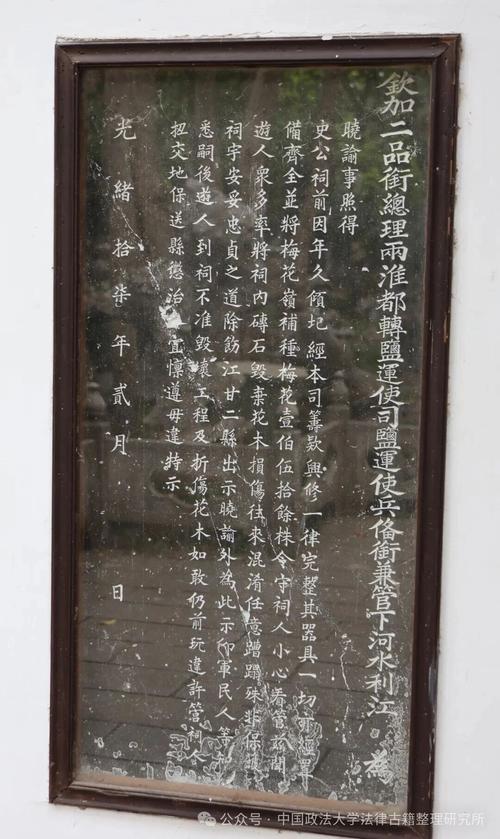 欽加二品銜總理兩淮都轉鹽運使司鹽運使兵俻銜兼管下河水利江 為
曉諭事照得
史公祠前因年久傾圮經本司籌欵興修一律完整其器具一切亦經置
備齊全並將梅花嶺補種梅花壹伯伍拾餘株令守祠人小心看管茲聞
遊人衆多率將祠內磚石毀棄花木損傷往來混淆任意蹧蹋殊非保護
祠宇安妥忠貞之道除飭江甘二縣出示曉諭外為此示仰軍民人等知
悉嗣後遊人到祠不准毀壞工程及折傷花木如敢仍前玩違許管祠人
扭交地保送縣懲治宜懍遵毋違特示
光緒拾柒年貳月 日
公众号·中国政法大学法律古籍整理研究所